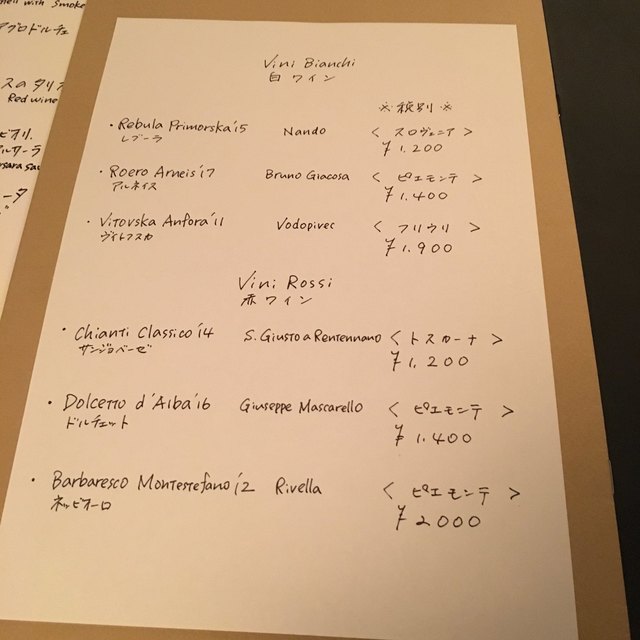 Smoke
アグロドルチェ
Red wine
Vini Bianchi
白ワイン
※ 税別 ※
・Rebula Primorska '15 Nando < スロヴェニア >
レブーラ ¥1.200
・Roero Arneis '17 Bruno Giacosa < ピエモンテ >
アルネイス ¥1.400
・Vitovska Anfora '11 Vodopivec < フリウリ >
ヴィトフスカ ¥1.900
Vini Rossi
赤ワイン
・Chianti Classico '14 S. Giusto a Rentennano < トスカーナ >
サンジョベーゼ ¥1.200
・Dolcetto d'Alba '16 Giuseppe Mascarello < ピエモンテ >
ドルチェット ¥1.400
・Barbaresco Montestefano '12 Rivella < ピエモンテ >
ネッビオーロ ¥2000